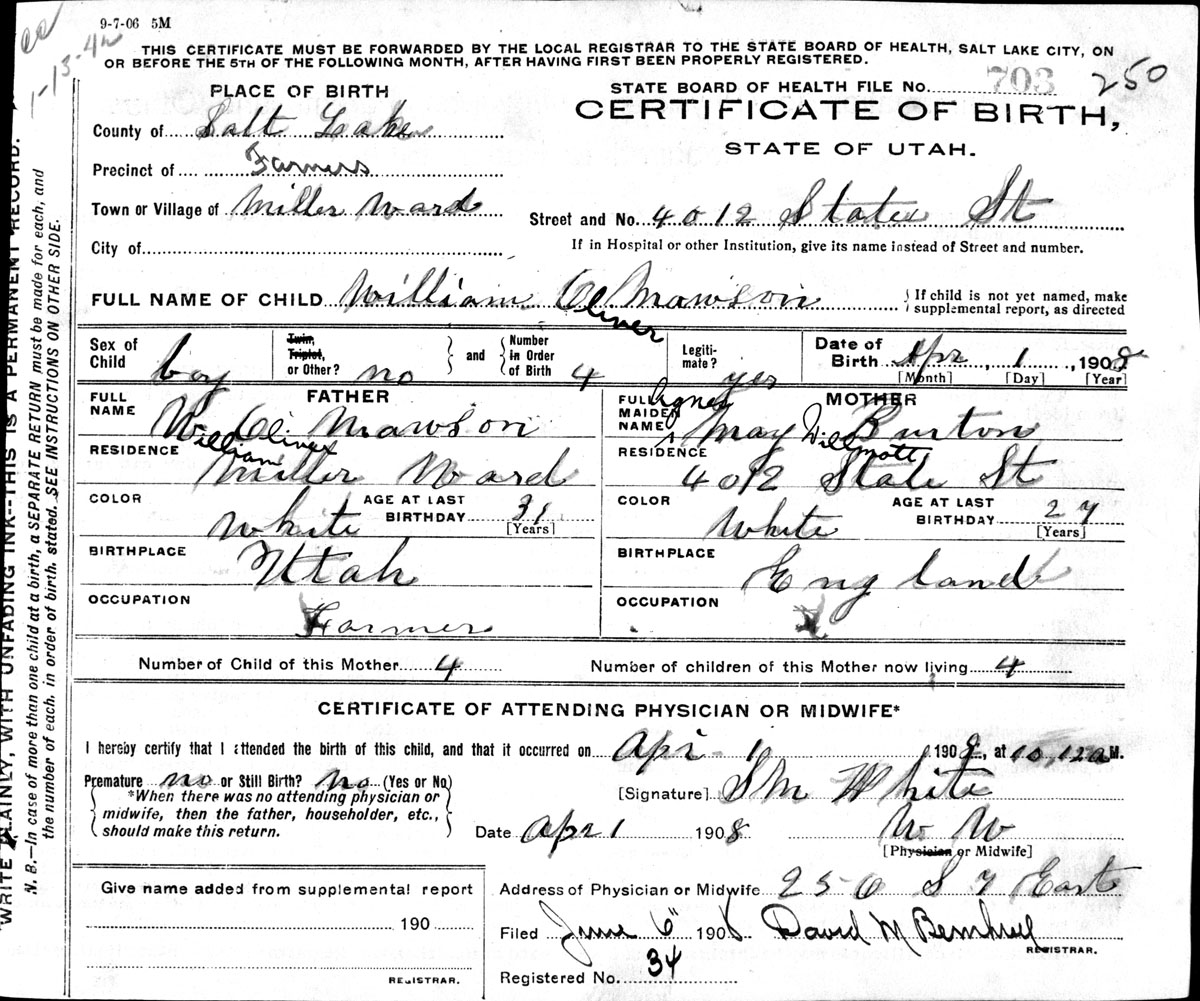 9-7-06 5M
1-13-42
THIS CERTIFICATE MUST BE FORWARDED BY THE LOCAL REGISTRAR TO THE STATE BOARD OF HEALTH, SALT LAKE CITY, ON
OR BEFORE THE 5TH OF THE FOLLOWING MONTH, AFTER HAVING FIRST BEEN PROPERLY REGISTERED.
PLACE OF BIRTH
STATE BOARD OF HEALTH FILE No. 703 250
CERTIFICATE OF BIRTH,
STATE OF UTAH.
County of Salt Lake
Precinct of Farmers
Town or Village of Miller Ward
Street and No. 4012 State St
City of
If in Hospital or other Institution, give its name instead of Street and number.
FULL NAME OF CHILD William Ol Mawson
Oliver
If child is not yet named, make
supplemental report, as directed
Sex of Child boy
Twin, Triplet, or Other? no
and
Number in Order of Birth 4
Legitimate? yes
Date of Birth Apr 1, 1908
[Month] [Day] [Year]
FATHER
FULL NAME W Ol Mawson
William Oliver
RESIDENCE Miller Ward
COLOR White
AGE AT LAST BIRTHDAY 31
[Years]
BIRTHPLACE Utah
OCCUPATION Farmer
MOTHER
FULL MAIDEN NAME Agnes May Burton
Willmott
RESIDENCE 4012 State St
COLOR White
AGE AT LAST BIRTHDAY 27
[Years]
BIRTHPLACE England
OCCUPATION
Number of Child of this Mother 4
Number of children of this Mother now living 4
CERTIFICATE OF ATTENDING PHYSICIAN OR MIDWIFE*
I hereby certify that I attended the birth of this child, and that it occurred on Apr 1 1908, at 10,12 a M.
Premature no or Still Birth? No (Yes or No)
*When there was no attending physician or
midwife, then the father, householder, etc.,
should make this return.
[Signature] S M White
Date Apr 1 1908
[Physician or Midwife]
Give name added from supplemental report
190
REGISTRAR.
Address of Physician or Midwife 250 S 7 East
Filed June 6" 1908 David M
REGISTRAR.
Registered No. 34
WRITE PLAINLY, WITH UNFADING INK--THIS IS A PERMANENT RECORD.
N. B.—In case of more than one child at a birth, a SEPARATE RETURN must be made for each, and
the number of each, in order of birth, stated. SEE INSTRUCTIONS ON OTHER SIDE.